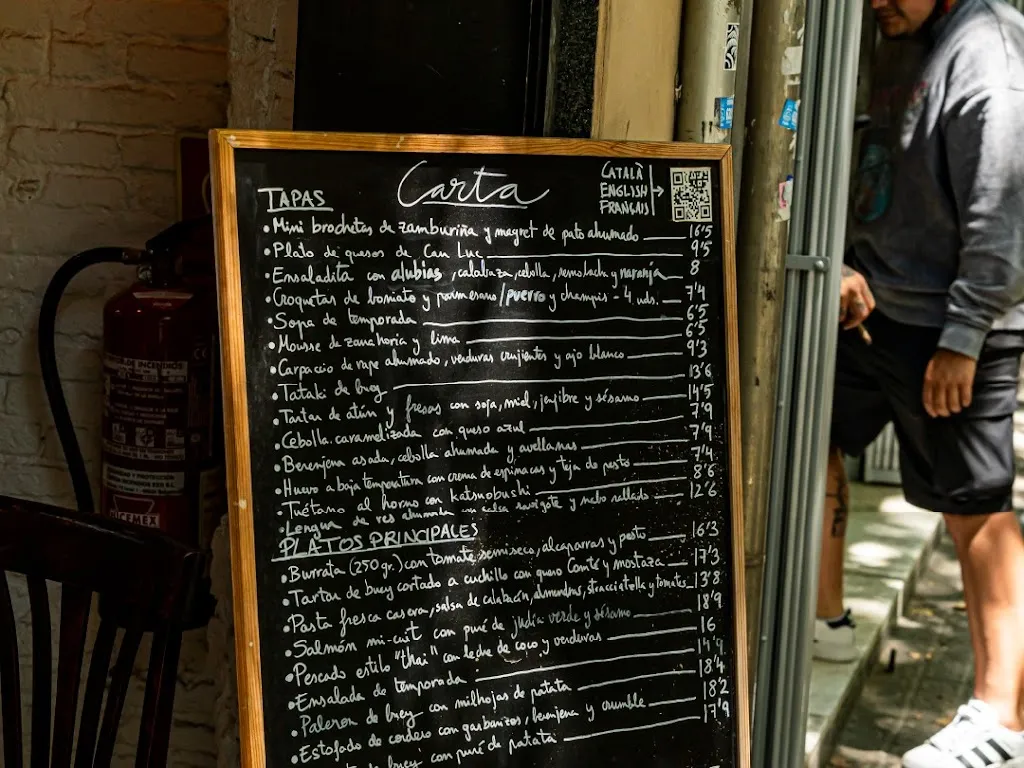 Carta
CATALÀ
ENGLISH
FRANÇAIS
TAPAS
• Mini brochetas de zamburiña y magret de pato ahumado 16'5
• Plato de quesos de Can Luc 9'5
• Ensaladita con alubias, calabaza, cebolla, remolacha y naranja 8
• Croquetas de boniato y parmesano/puerro y champis - 4 uds. 7'4
• Sopa de temporada 6'5
• Mousse de zanahoria y lima 6'5
• Carpaccio de rape ahumado, verduras crujientes y ajo blanco 9'3
• Tataki de buey 13'6
• Tartar de atún y fresas con soja, miel, jenjibre y sésamo 14'5
• Cebolla caramelizada con queso azul 7'9
• Berenjena asada, cebolla ahumada y avellanas 7'9
• Huevo a baja temperatura con crema de espinacas y teja de pesto 7'4
• Tuétano al horno con katsuobushi 8'6
• Lengua de res ahumada con salsa ravigote y nabo rallado 12'6
PLATOS PRINCIPALES
• Burrata (250 gr.) con tomate semiseco, alcaparras y pesto 16'3
• Tartar de buey cortado a cuchillo con queso Comté y mostaza 17'3
• Pasta fresca casera, salsa de calabacín, almendras, stracciatella y tomates 13'8
• Salmón mi-cuit con puré de judía verde y sésamo 18'9
• Pescado estilo "thai" con leche de coco y verduras 16
• Ensalada de temporada 14'9
• Paleron de buey con milhojas de patata 18'4
• Estofado de cordero con garbanzos, berenjena y crumble 18'2
de buey con puré de patata 17'9